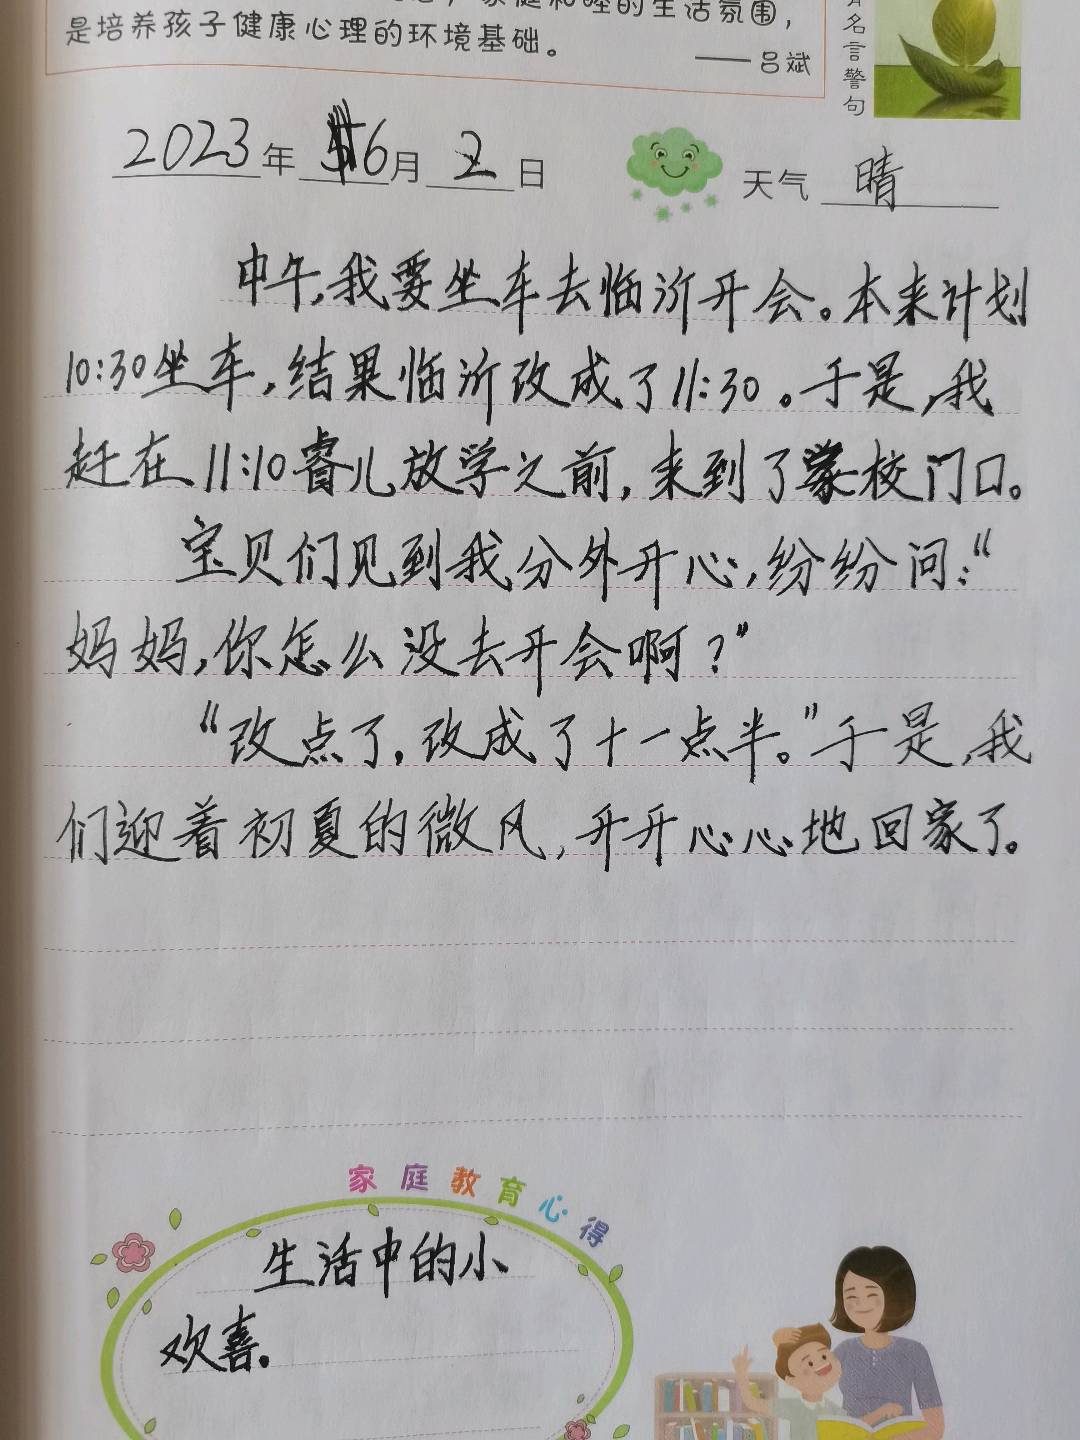 健和睦的生活氛围，
是培养孩子健康心理的环境基础。
——吕斌
名言警句
2023年6月2日
天气 晴
中午,我要坐车去临沂开会。本来计划
10:30坐车,结果临沂改成了11:30。于是,我
赶在11:10睿儿放学之前,来到了学校门口。
宝贝们见到我分外开心,纷纷问:“
妈妈,你怎么没去开会啊?”
“改点了,改成了十一点半。”于是,我
们迎着初夏的微风,开开心心地回家了。
家庭教育心得
生活中的小
欢喜.